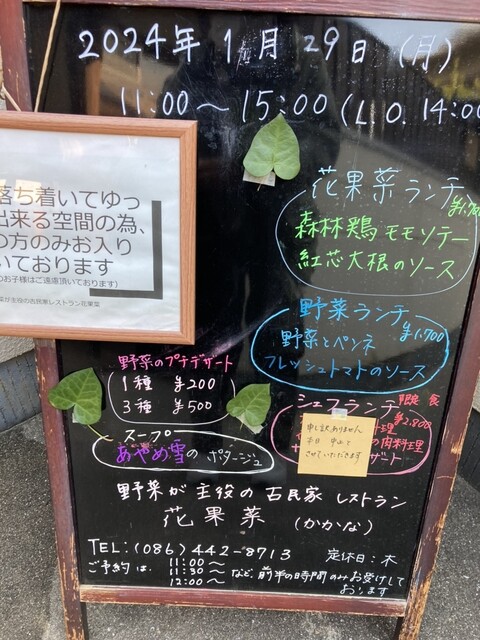 2024年 1月 29日 (月)
11:00～15:00 (L.O. 14:00
落ち着いてゆっ
出来る空間の為、
の方のみお入り
いております
のお子様はご遠慮頂いております)
が主役の古民家レストラン花果菜
花果菜ランチ
森林鶏モモソテー
紅芯大根のソース
野菜ランチ
¥1.700
野菜とペンネ
フレッシュトマトのソース
野菜のプチデザート
1種 ¥200
3種 ¥500
シェフランチ 限定 食
¥2.800
理
の肉料理
ザート
申し訳ありません
本日 中止と
させていただきます
スープ
あやめ雪のポタージュ
野菜が主役の古民家レストラン
花果菜 (かかな)
TEL:(086)442-8713 定休日:木
ご予約は、11:00～
11:30～
12:00～
など、前半の時間のみお受けして
おります